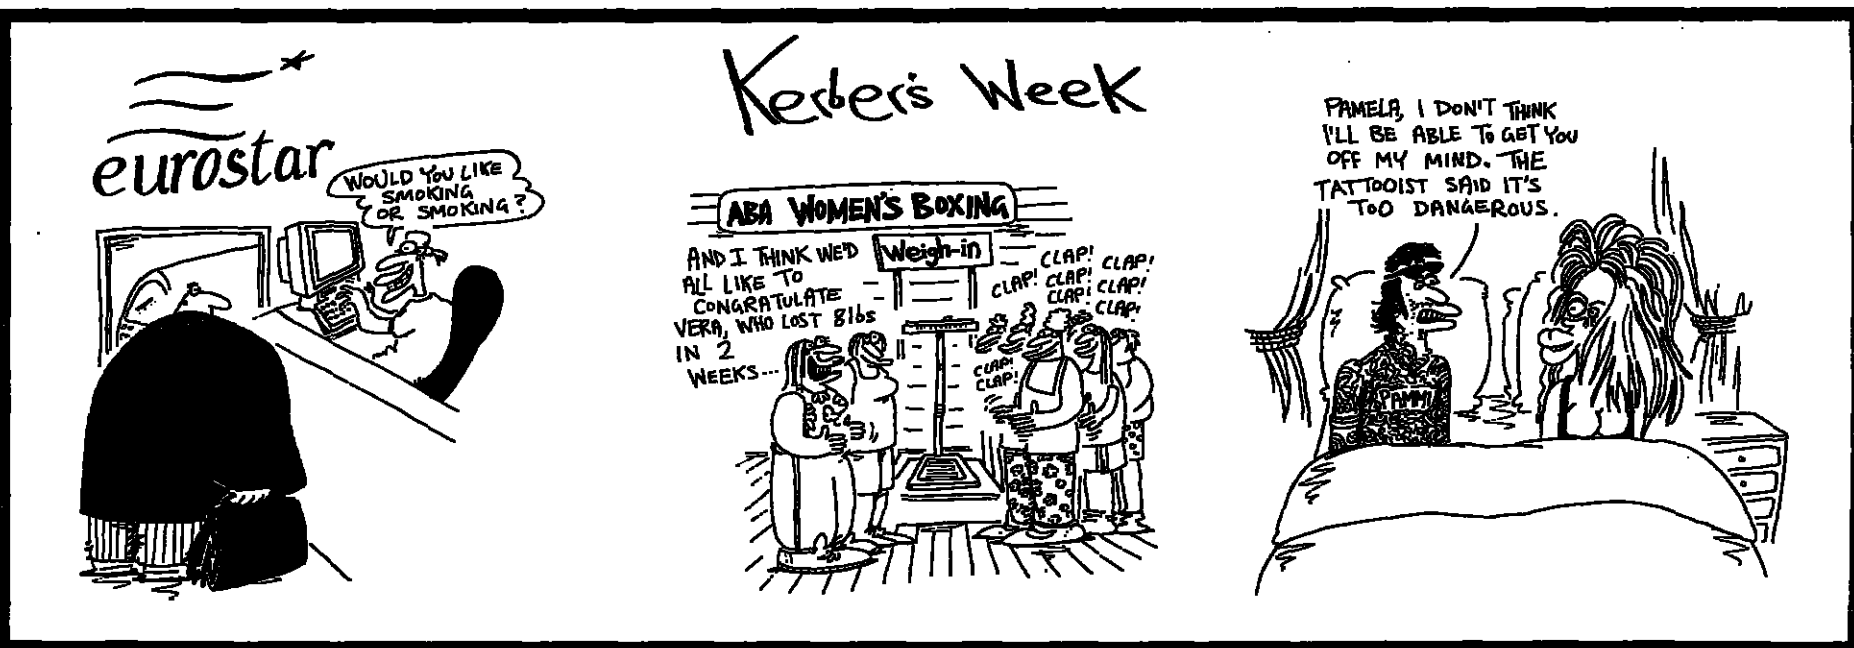 Kerber's Week
eurostar
WOULD YOU LIKE
SMOKING
OR SMOKING?
ABA WOMEN'S BOXING
Weigh-in
AND I THINK WE'D
ALL LIKE TO
CONGRATULATE
VERA, WHO LOST 8lbs
IN 2
WEEKS...
CLAP! CLAP!
CLAP! CLAP! CLAP!
CLAP! CLAP!
CLAP!
CLAP!
PAMELA, I DON'T THINK
I'LL BE ABLE TO GET YOU
OFF MY MIND. THE
TATTOOIST SAID IT'S
TOO DANGEROUS.
PAMMI